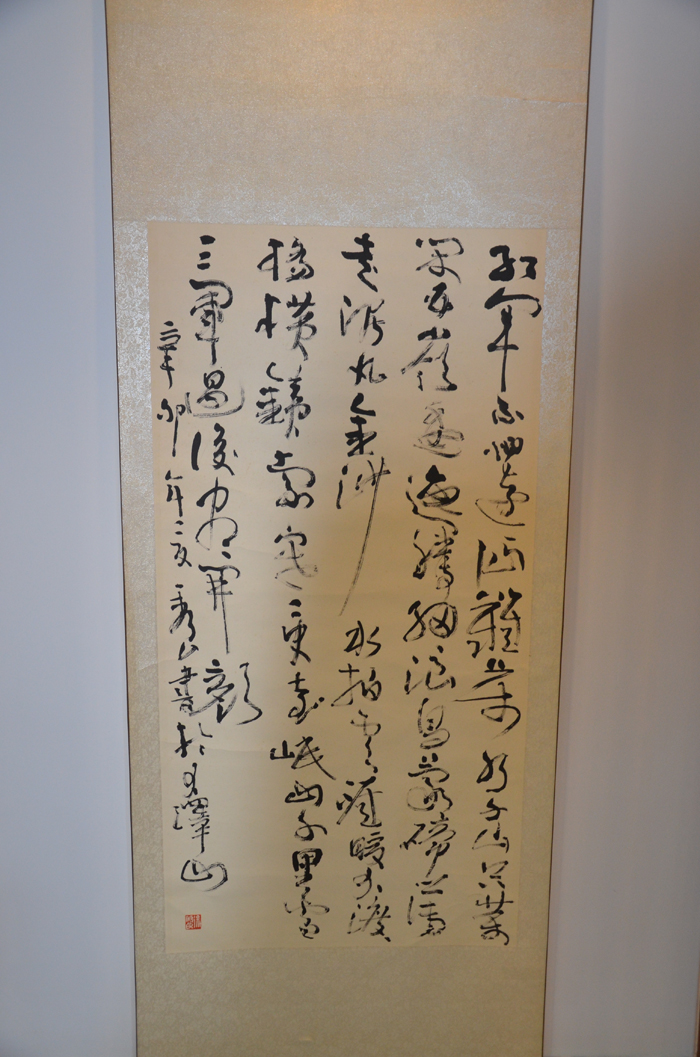 紅軍不怕遠征難萬水千山只等
閑五嶺逶迤騰細浪烏蒙磅礴
走泥丸金沙水拍雲崖暖大渡
橋橫鐵索寒更喜岷山千里雪
三軍過後盡開顏
辛卯年書於大澤山